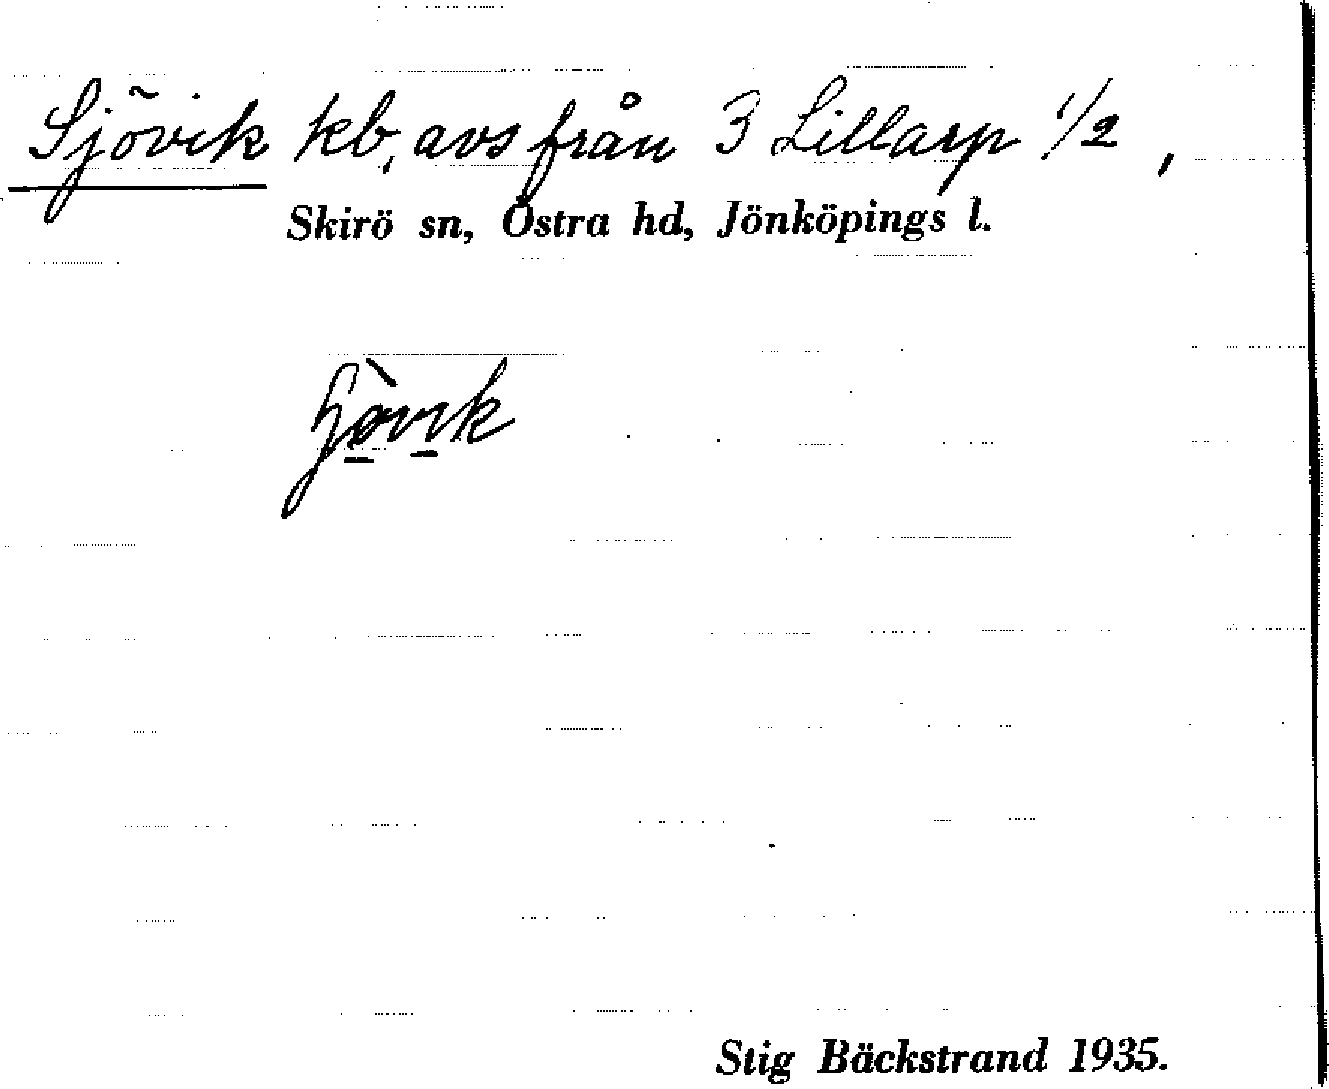 Sjövik kb, avs från 3 Lillarp 1/2,
Skirö sn, Östra hd, Jönköpings l.
Stig Bäckstrand 1935.